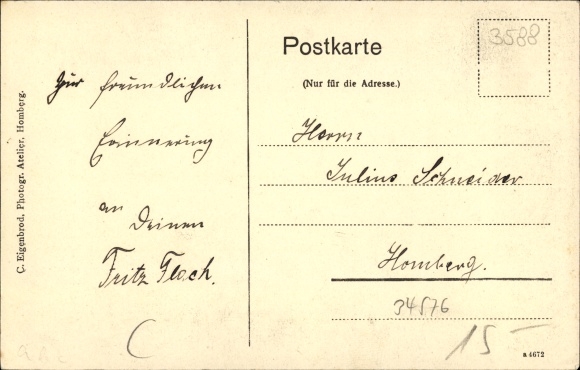 C. Eigenbrod, Photogr. Atelier, Homberg.
Zur freundlichen
Erinnerung
an
Deinen
Fritz Flach.
C
Postkarte
(Nur für die Adresse.)
3588
Herrn
Julius Schneider
Homberg.
34576
15 –
a 4672